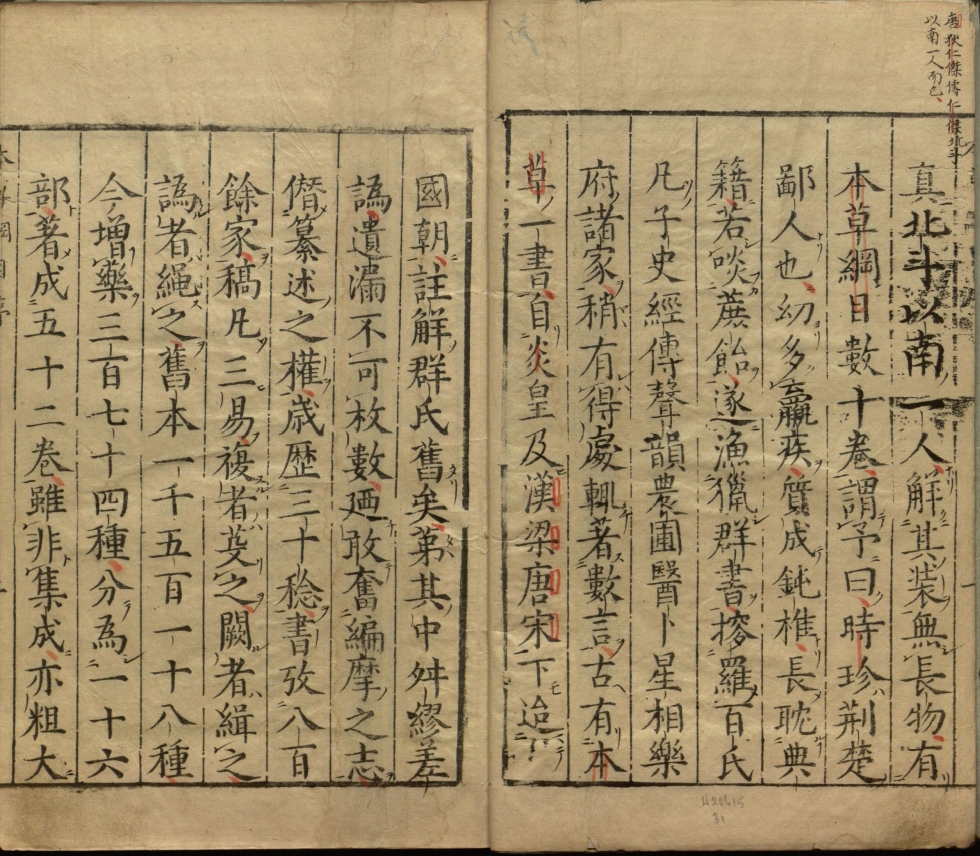 唐狄仁傑傳仁傑北斗
以南一人而已
真北斗以南一人解其装無長物有
本草綱目數十卷謂予曰時珍荆楚
鄙人也幼多羸疾質成鈍椎長耽典
籍若啖蔗飴遂漁獵群書搜羅百氏
凡子史經傳聲韻農圃醫卜星相樂
府諸家稍有得處輒著數言古有本
草一書自炎皇及漢梁唐宋下迨
國朝註解群氏舊矣第其中舛繆差
譌遺漏不可枚數廼敢奮編摩之志
僭纂述之權歳歴三十稔書攷八百
餘家稿凡三易複者芟之闕者緝之
譌者繩之舊本一千五百一十八種
今增藥三百七十四種分為一十六
部著成五十二卷雖非集成亦粗大